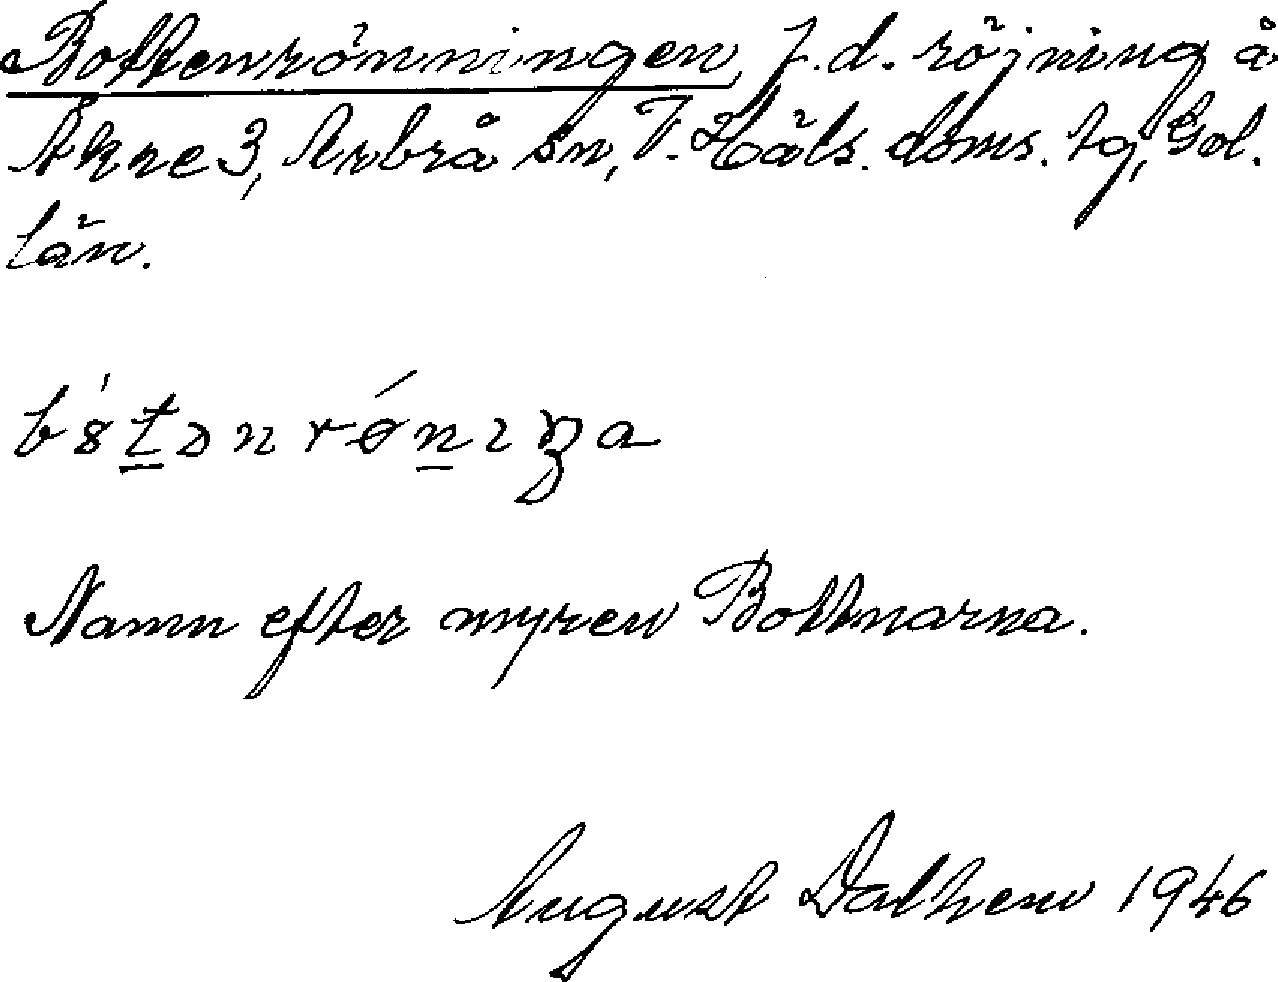 Bottenrönningen, f.d. röjning å
Åkre 3, Arbrå sn, V. Häls. doms. tg, Gvl.
län.
Namn efter myren Bottnarna.
August Dalhem 1946